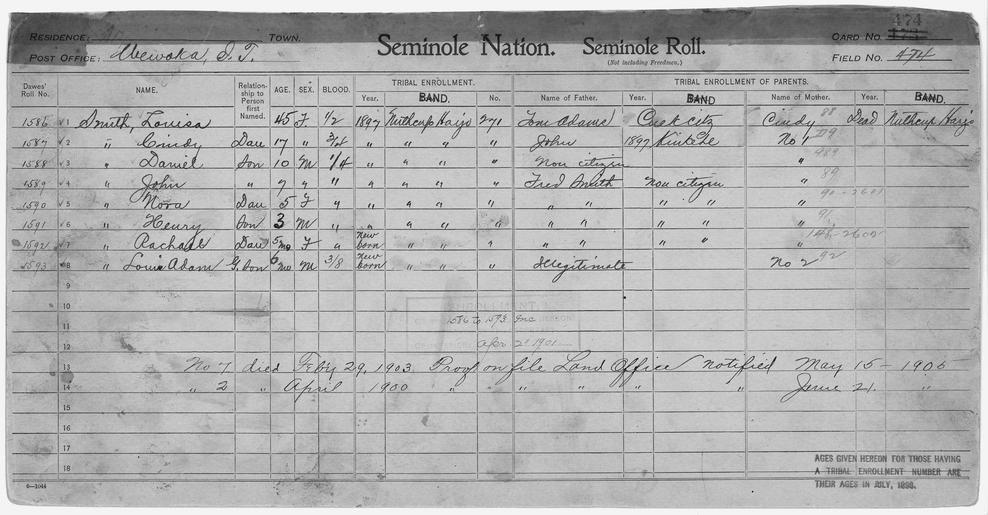 474
RESIDENCE: TOWN. Seminole Nation. Seminole Roll. CARD NO.
POST OFFICE: Wewoka, I. T. (Not including Freedmen.) FIELD NO. 474
TRIBAL ENROLLMENT. TRIBAL ENROLLMENT OF PARENTS.
Dawes' Roll No. NAME. Relationship to Person first Named. AGE. SEX. BLOOD. Year. BAND. No. Name of Father. Year. BAND Name of Mother. Year. BAND.
1586 1 Smith, Louisa 45 F. 1/2 1897 Nuthcup Harjo 271 Tom Adams Creek citz Cindy 88 Dead Nuthcup Harjo
1587 2 " Cindy Dau 17 " 3/4 " " " " John 1897 No 1
1588 3 " Daniel Son 10 M 1/4 " " " " Non citizen " 89
1589 4 " John " 7 " " " " " " Fred Smith Non citizen " 89
1590 5 " Nora Dau 5 F " " " " " " " " " " 90-2601
1591 6 " Henry Son 3 M " " " " " " " " " " 91
1592 7 " Rachael Dau 5 mo F " New born " " " " " " " " 145-2602
1593 8 " Louis Adam G. Son 6 mo M 3/8 New born " " " Illegitimate No 2 92
9
10 ENROLLMENT
11 1586 to 1593 Inc
12 Apr 2 1901
13 No 7 died Feby 29, 1903 Proof on file Land Office notified May 15 - 1905
14 " 2 " April 1900 " " " " " " June 21. "
15
16
17
18
AGES GIVEN HEREON FOR THOSE HAVING
A TRIBAL ENROLLMENT NUMBER ARE
THEIR AGES IN JULY, 1898.
6-1044